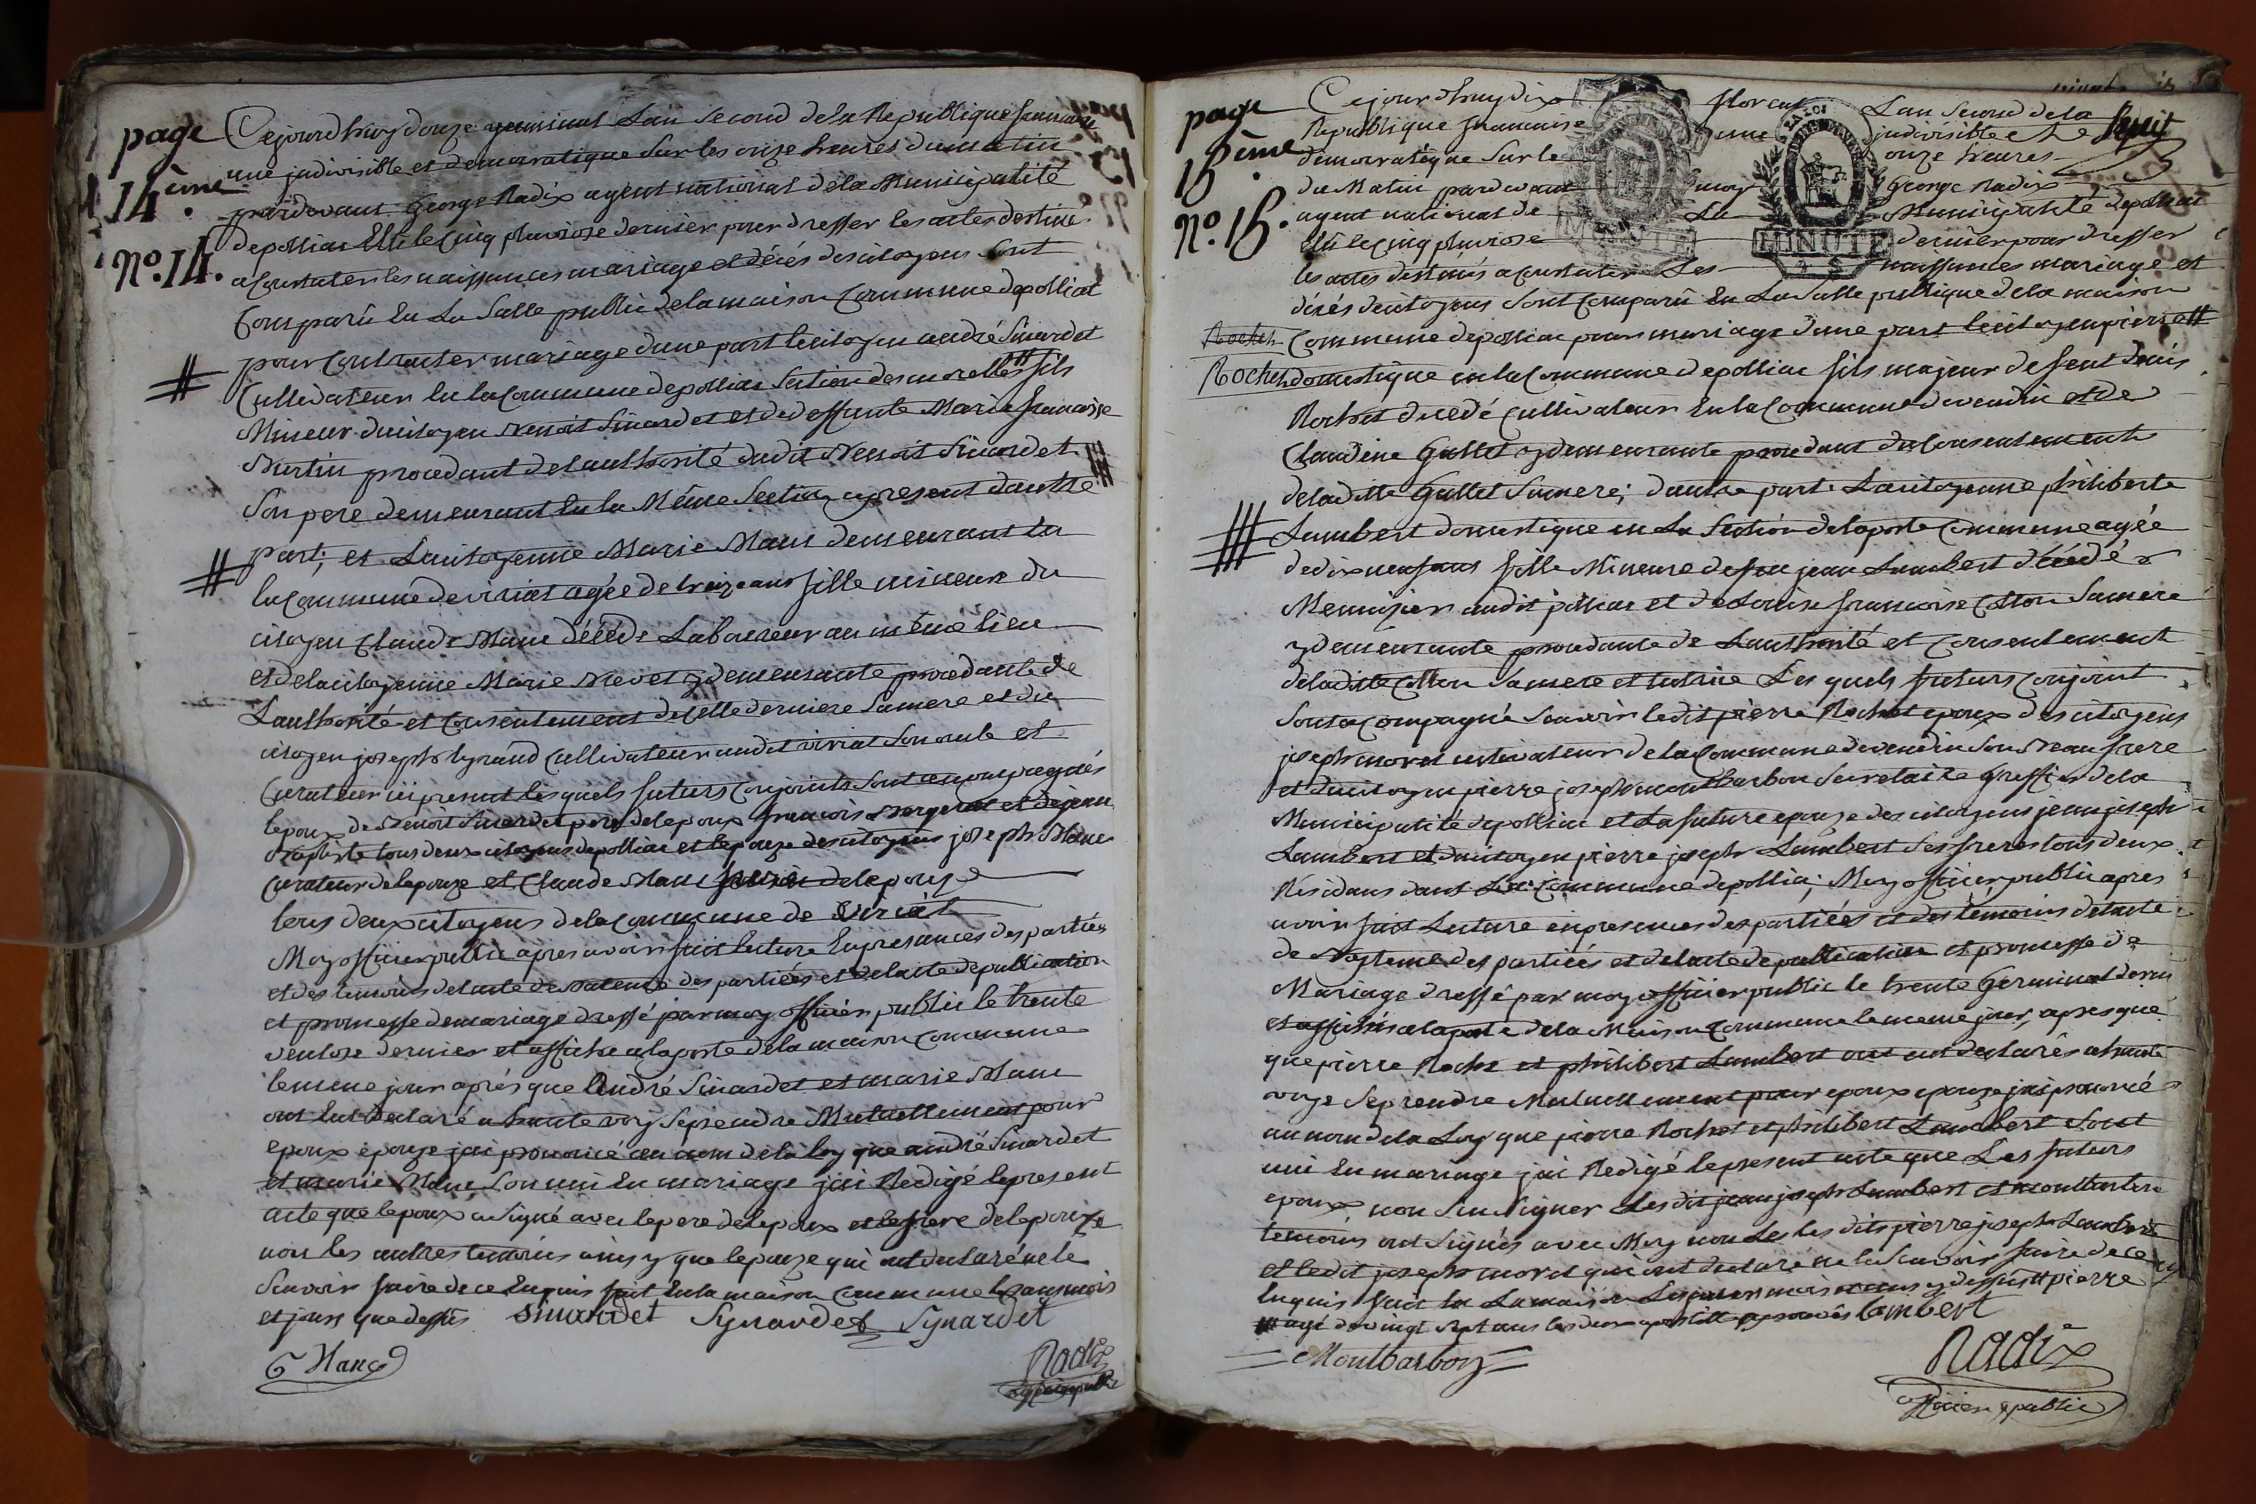 page
14ème.
No. 14.
Cejourdhuy douze germinal Lan second de la Republique francaise
une jndivisible et democratique sur les onze heures du matin
pardevant George Radix agent national de la Municipalité
depolliac Elû le cinq pluviose dernier pour dresser les actes destinés
a Constater les naissances mariage et décés des citoyens sont
Comparû En La Salle public de la maison Commune depolliat
pour Contracter mariage dune part lecitoyen andré Sinardet
Cultivateur En la Commune depolliac Section des morelles # fils
Mineur ducitoyen Benoit Sinardet et de deffunte Marie francoise
procedant de lauthorité dudit Benoit Sinardet
Son pere demeurant En la Même Section cy present dautre
part; et Lacitoyenne Marie Manc demeurant En
la Commune de viriat agée de treize ans fille mineure du
citoyen Claude Manc décédé Laboureur au même lieu
et delacitoyenne Marie Nevet y demeurante procedante de
Lauthorité et Consentement de cette derniere Samere et du
citoyen joseph cultivateur audit viriat Son oncle et
Curateur ici present les quels futurs Conjoints sont accompagnés
lepoux de Benoit Sinardet pere delepoux francois et dejean
Baptiste tous deux citoyens depolliac et lepouze des citoyens joseph
Curateur de lepouze et Claude Manc delepouze
tous deux citoyens de la Commune de Viriat
Moy officier public apres avoir fait lecture En presances des partiés
et des temoins de lacte de des partiés et de lacte de publication
et promesse de mariage dressé par moy officier public le trente
ventose dernier et affiché a la porte de la maison Commune
le meme jour aprés que André Sinardet et marie Manc
ont Eut declaré a haute voix Seprendre Mutuellement pour
epoux epouze jai prononcé au nom de la loy que andré Sinardet
et marie Manc Son uni En mariage jai Redigé le present
acte que lepoux a Signé avec lepere delepoux et lefrere delepouze
non les autres temoins ainsy que lepouze qui ont declaré ne le
Scavoir faire de ce Enquis fait En la maison Commune les ans mois
et jour que dessus sinardet Synardet Synardet
C Manc
Radix
officier public
page
15ème
No. 15.
Cejourdhuy dix floreal Lan Second de la
Republique francaise une jndivisible et
democratique Sur le onze heures
du Matin pardevant moy George Radix
agent national de La Municipalité depolliat
Elû le cinq pluviose dernier pour dresser
les actes destinés a Constater Les naissances mariage et
décés des citoyens Sont Comparû En La Salle publique de la maison
Rochet
Commune depolliac pour mariage dune part lecitoyen pierre #
Rochet domestique en la Commune depolliac fils majeur de feu
Rochet décedé Cultivateur En la Commune devendin et de
Claudine Gallet y demeurante procedant du Consentement
de la ditte Gallet Samere; dautre part Lacitoyenne philiberte
Lambert domestique en La Section de la poste Commune agée
de dix neuf ans fille Mineure de feu jean Lambert décédé
Menuzier audit polliac et de Louise francoise Colton Samere
y demeurante procedante de Lauthorité et Consentement
de la ditte Colton Samere et tutrice Les quels futurs conjoint
Sont accompagné Scavoir ledit pierre Rochet epoux des citoyens
joseph moret cultivateur de la Commune devendin Son Beau frere
et ducitoyen pierre joseph montbarbon Secretaire Greffier de la
Municipalité depolliac et La future epouze des citoyens jean joseph
Lambert et ducitoyen pierre joseph Lambert Ses freres tous deux
Residans dans La Commune depolliac; Moy officier public apres
avoir fait Lecture en presences des partiées et des temoins de lacte
de des partiées et de lacte de publication et promesse de
Mariage dressé par moy officier public le trente Germinal dernier
et affichés a la porte de la Maison Commune le meme jour, apres que
que pierre Rochet et philibert Lambert ont eut declarés a haute
voye Seprendre Mutuellement pour epoux epouze jai prononcé
au nom de la Loy que pierre Rochet et philibert Lambert Sont
uni En mariage jai Redigé le present acte que Les futurs
epoux non Sû Signer Les dit jean joseph Lambert et montbarbon
temoins ont Signés avec Moy non Les les dits pierre joseph Lambert
et ledit joseph moret qui ont declaré ne le Scavoir faire de ce
Enquis fait En La maison Les jour mois et ans dessus # pierre
# agé de vingt sept ans les deux apostille approuvés Lambert
Montbarbon
Radix
officier public
LA LOI
MINUTE
MINUTE
4 S